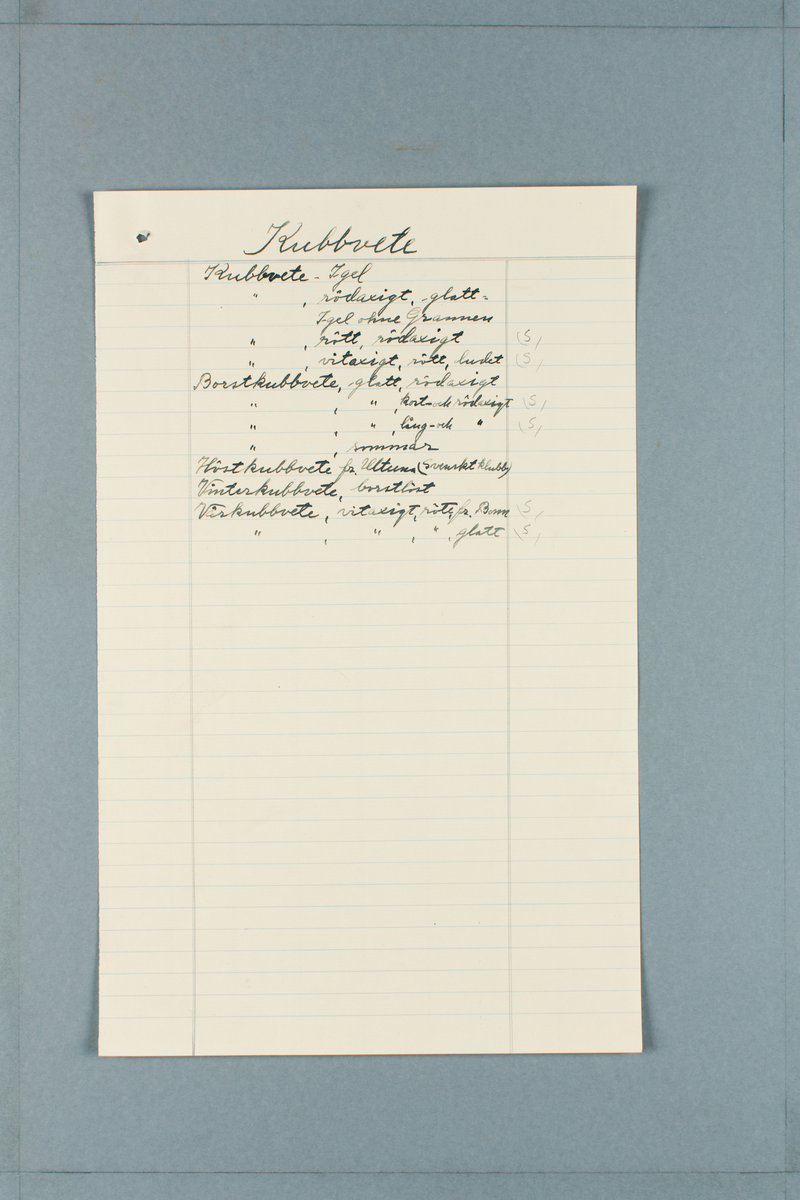 Kubbvete
Kubbvete - Igel
" , rödaxigt, glatt =
Igel ohne Grannen
" , rött, rödaxigt (S,
" , vitaxigt, rött, ludet (S,
Borstkubbvete, glatt, rödaxigt
" , " , kort- och rödaxigt (S,
" , " , lång- och " (S,
" , sommar
Höstkubbvete fr. Ultuna (Svenskt klubb)
Vinterkubbvete, borstlöst
Vårkubbvete, vitaxigt, rött, fr. Bonn (S,
" , " , " , glatt (S,